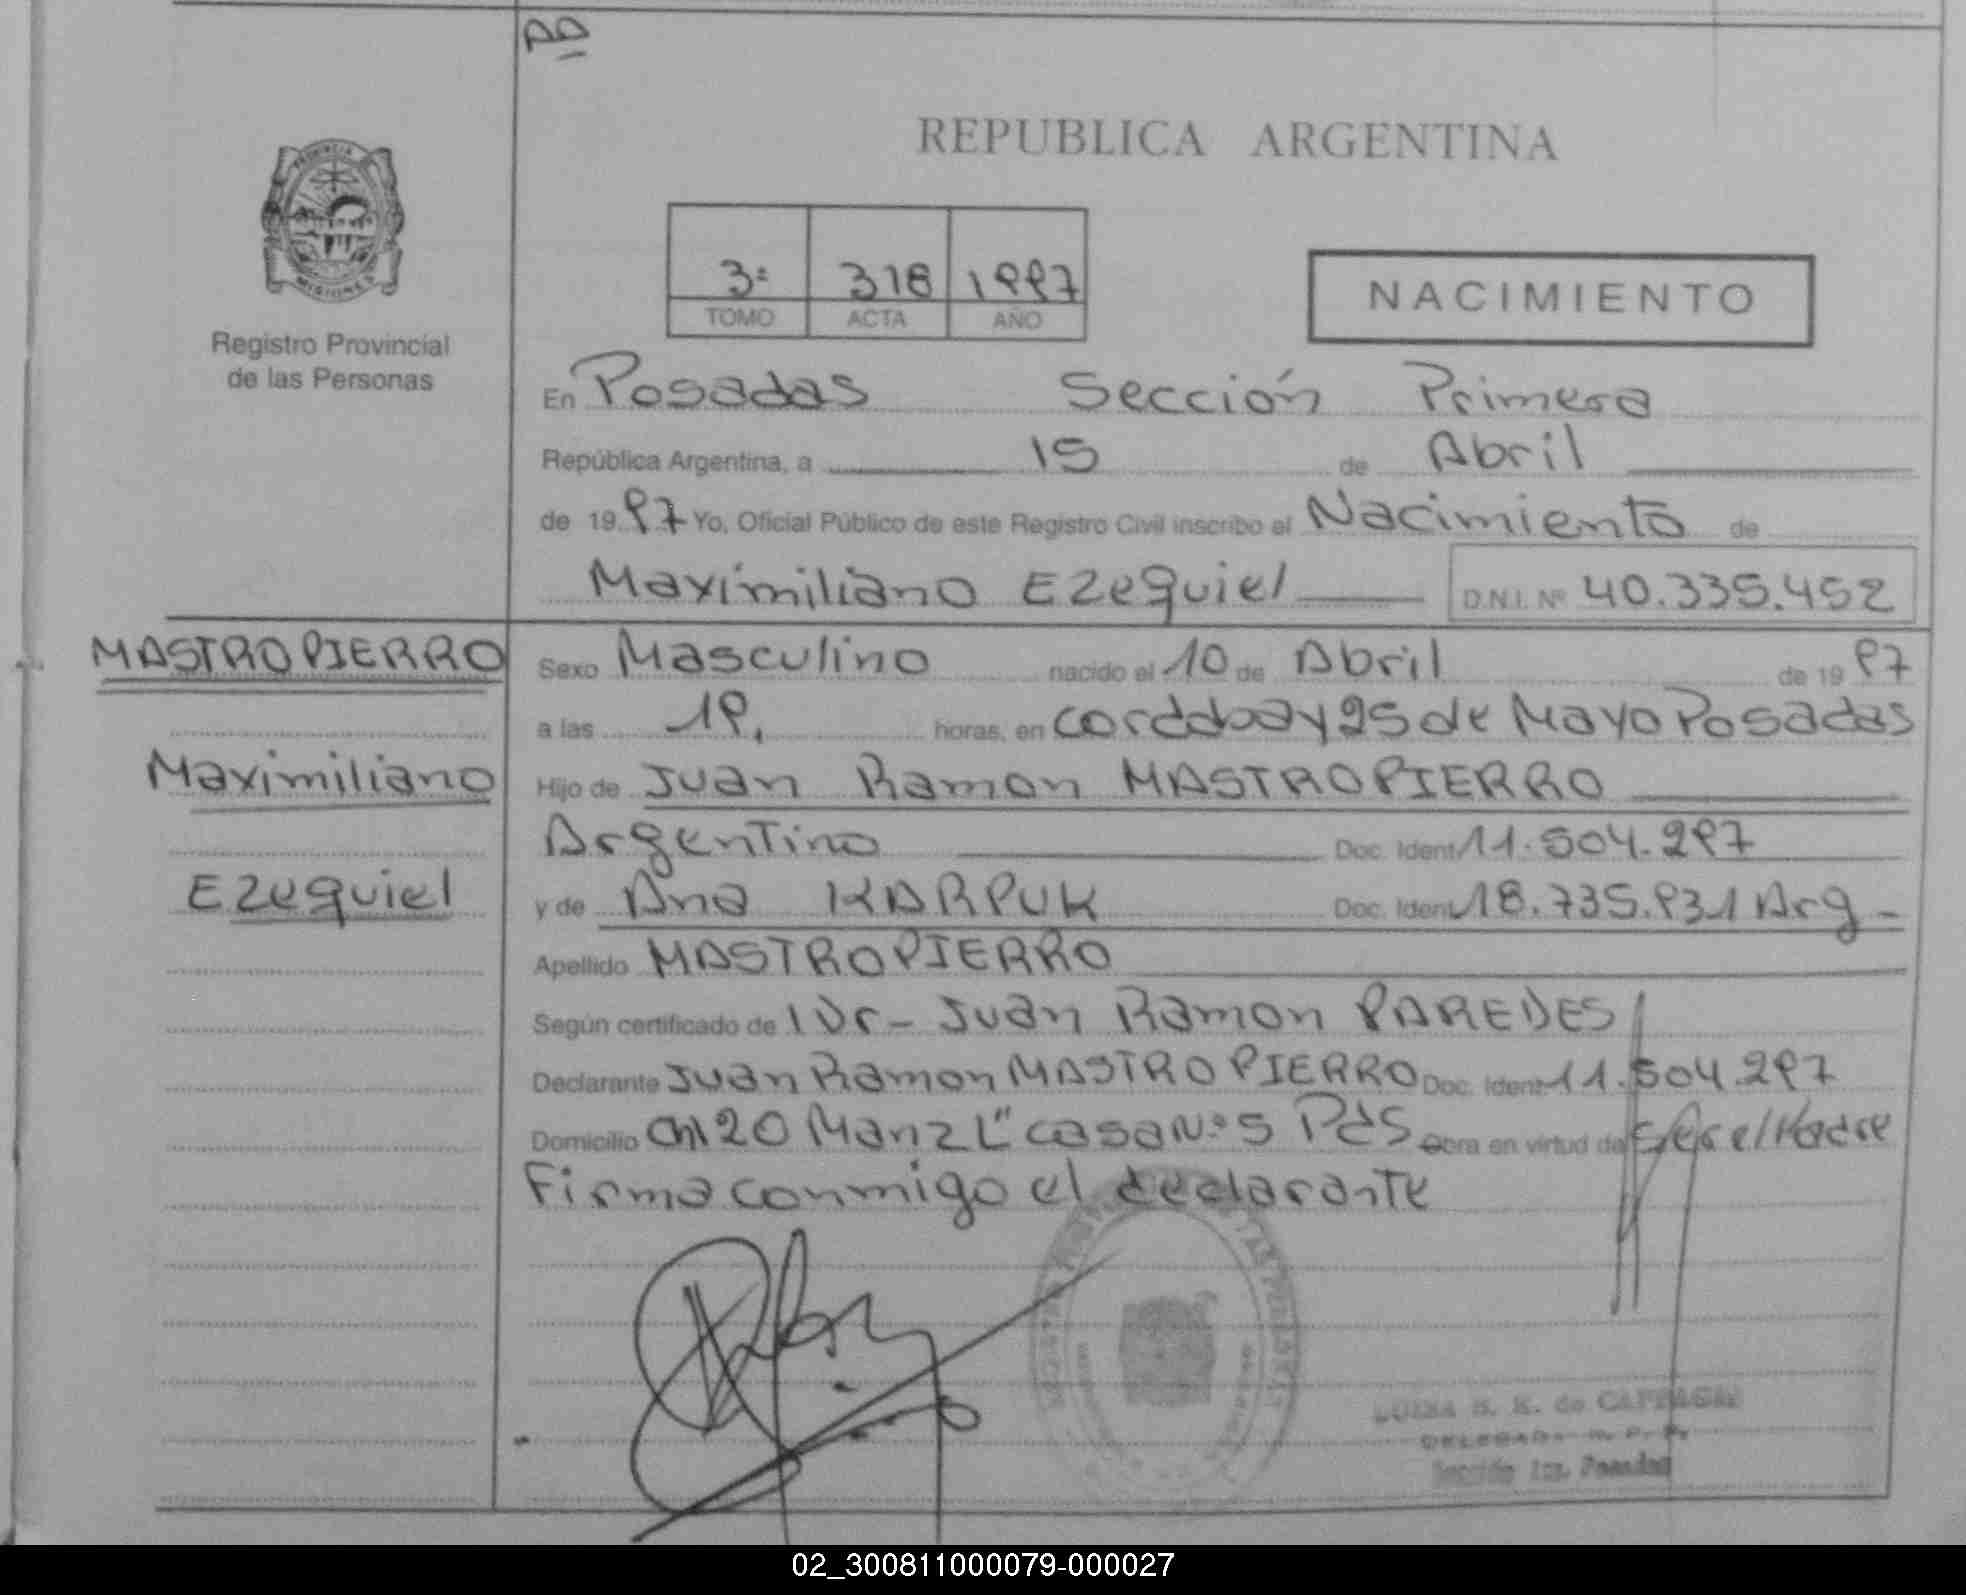 AD
REPUBLICA ARGENTINA
PROVINCIA
MISIONES
3ª 318 1997
TOMO ACTA AÑO
NACIMIENTO
Registro Provincial
de las Personas
En Posadas Sección Primera
República Argentina, a 15 de Abril
de 1997 Yo, Oficial Público de este Registro Civil inscribo el Nacimiento de
Maximiliano Ezequiel D.N.I. Nº 40.335.452
MASTROPIERRO
Maximiliano
Ezequiel
Sexo Masculino nacido el 10 de Abril de 1997
a las 19, horas, en y 25 de Mayo Posadas
Hijo de Juan Ramon MASTROPIERRO
Argentino Doc. Ident 11.504.297
y de Ana KARPUK Doc. Ident 18.735.931 Arg -
Apellido MASTROPIERRO
Según certificado de Dr- Juan Ramon PAREDES
Declarante Juan Ramon MASTROPIERRO Doc. Ident 11.504.297
Domicilio Ch 20 Manz L" casa N:º 5 Pds Obra en virtud de ser el Padre
Firma conmigo el declarante
LUISA de
DELEGADA
Sección 1ra. Posadas
02_300811000079-000027